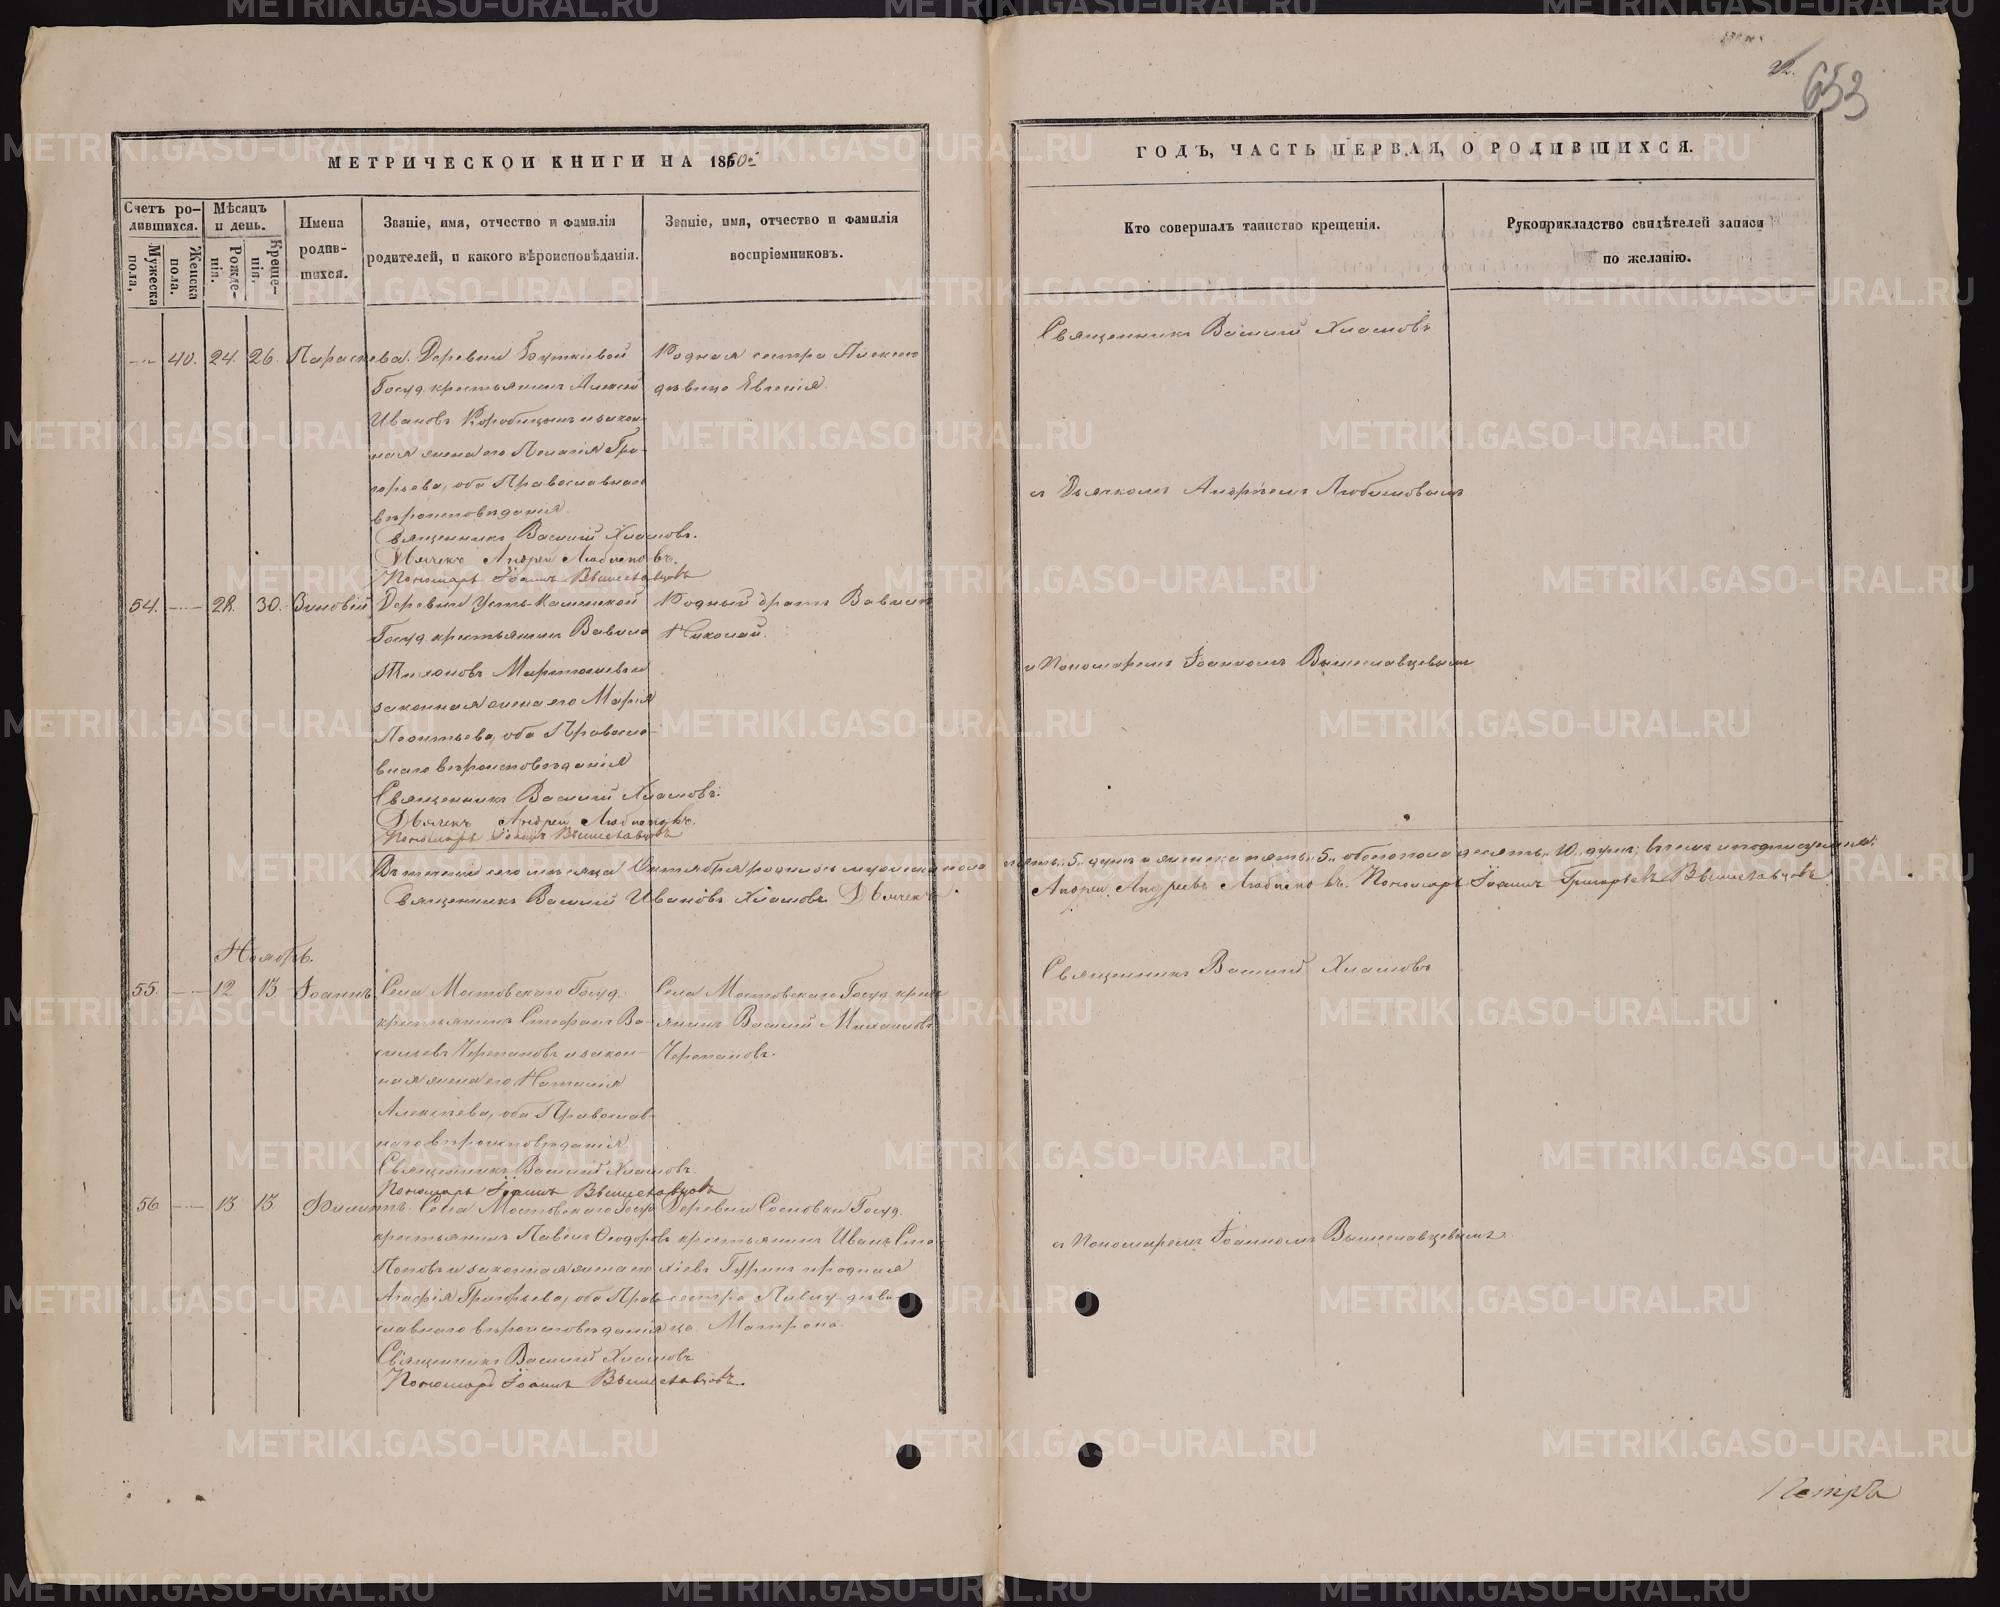 653
МЕТРИЧЕСКОЙ КНИГИ НА 1860й
ГОДЪ, ЧАСТЬ ПЕРВАЯ, О РОДИВШИХСЯ.
Счетъ родившихся.
Мужеска пола,
Женска пола.
Мѣсяцъ и день.
Рожденія.
Крещенія.
Имена родившихся.
Званіе, имя, отчество и фамилія
родителей, и какого вѣроисповѣданія.
Званіе, имя, отчество и фамилія
воспріемниковъ.
Кто совершалъ таинство крещенія.
Рукоприкладство свидѣтелей записи
по желанію.
40. 24. 26. Параскева.
Деревни Буткиевой
Госуд. крестьянинъ Алексей
Ивановъ Коробицынъ и закон-
ная жена его Пелагія Гри-
горьева, оба Православнаго
вѣроисповѣданія.
Священникъ Василій Хламовъ.
Дьячекъ Андрей
Пономарь Іоаннъ Вышеславцовъ
Родная сестра Алексею
дѣвица Евгенія.
Священникъ Василій Хламовъ
съ Дьячкомъ Андреемъ
и Пономаремъ Іоанномъ Вышеславцевымъ
54. 28. 30. Зиновій
Деревни Усть-Калинской
Госуд. крестьянинъ Вавила
Тихоновъ
законная жена его Марія
Леонтьева, оба Правосла-
внаго вѣроисповѣданія
Священникъ Василій Хламовъ.
Дьячекъ Андрей
Пономарь Іоаннъ Вышеславцовъ
Родный братъ Вавилы
Николай.
Въ теченіи сего мѣсяца Октября родилось мужеска пола
пять „5„ душъ и женска пять „5„ обоего пола десять „10„ душъ; въ чемъ и подписуемся:
Священникъ Василій Ивановъ Хламовъ. Дьячекъ
Андрей Андреевъ Пономарь Іоаннъ Григорьевъ Вышеславцовъ
Ноябрь.
55. 12 13 Іоаннъ
Села Мостовскаго Госуд.
крестьянинъ Стефанъ Ва-
сильевъ Черепановъ и закон-
ная жена его Наталія
Алексѣева, оба Православ-
наго вѣроисповѣданія.
Священникъ Василій Хламовъ.
Пономарь Іоаннъ Вышеславцовъ
Села Мостовскаго Госуд. крест-
янинъ Василій Михаиловъ
Черепановъ.
Священникъ Василій Хламовъ
съ Пономаремъ Іоанномъ Вышеславцевымъ.
56 13 13 Филиппъ.
Села Мостовскаго Госуд.
крестьянинъ Павелъ Феодоровъ
Поповъ и законная жена его
Агафія Григорьева, оба Право-
славнаго вѣроисповѣданія
Священникъ Василій Хламовъ
Пономарь Іоаннъ Вышеславцовъ.
Деревни Сосновки Госуд.
крестьянинъ Иванъ
Гуринъ и родная
сестра Павлу дѣви-
ца Матрона.
METRIKI.GASO-URAL.RU